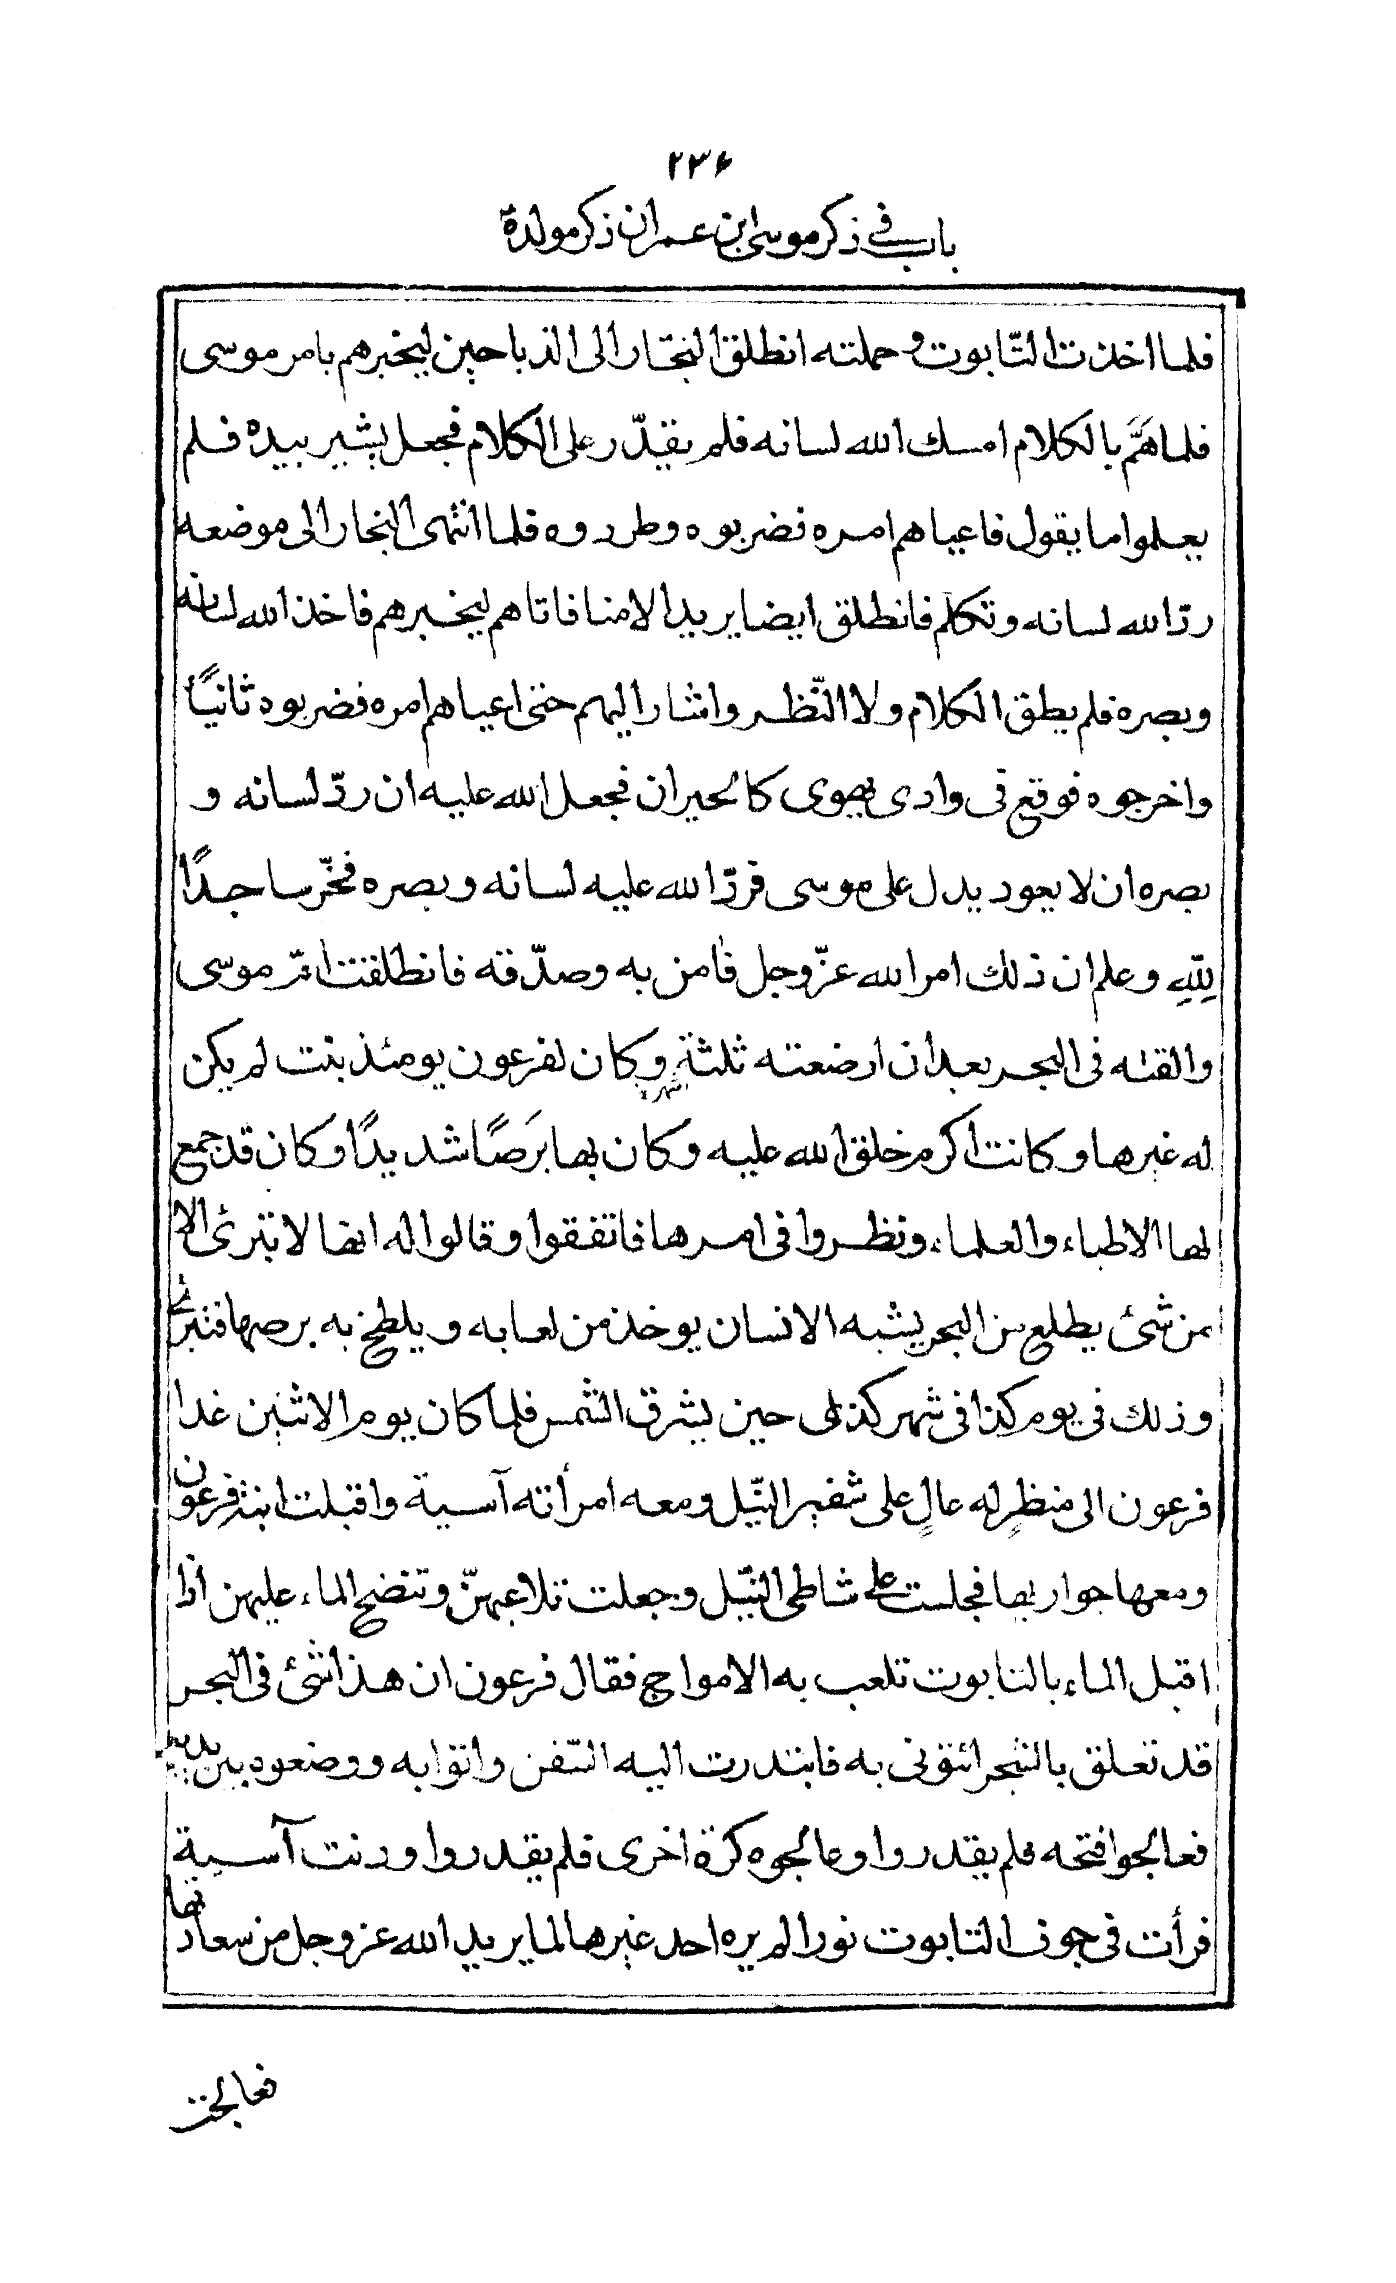 ٢٣۶
باب في ذكر موسى ابن عمران ذكر مولده
فلما اخذت التّابوت و حملته انطلق النجّار الى الذباحين ليخبرهم بامر موسى
فلما همَّ بالكلام امسك الله لسانه فلم يقدّر على الكلام فجعل يشير بيده فلم
يعلموا ما يقول فاعياهم امره فضربوه وطردوه فلما انتهى النجار الى موضعه
ردّ الله لسانه وتكلم فانطلق ايضا يريد الامنا فاتاهم ليخبرهم فاخذ الله لسانه
وبصره فلم يطق الكلام ولا النّظر واشار اليهم حتى اعياهم امره فضربوه ثانيًا
واخرجوه فوقع في وادى يهوى كالحيران فجعل الله عليه ان ردّ لسانه و
بصره ان لا يعود يدل على موسى فردّ الله عليه لسانه وبصره فخّر ساجدًا
للّهِ وعلم ان ذلك امر الله عزّ وجل فامن به وصدّقه فانطلقت امّ موسى
والقته في البحر بعد ان ارضعته ثلثة اشهر وكان لفرعون يومئذ بنت لم يكن
له غيرها وكانت اكرم خلق الله عليه وكان بها بَرَصًا شديدًا وكان قد جمع
لها الاطباء والعلماء ونظروا في امرها فاتفقوا وقالوا له انها لا تبرئ الا
من شئ يطلع من البحر يشبه الانسان يوخذ من لعابه ويلطخ به برصها فتبرئ
وذلك في يوم كذا في شهر كذى حين يشرق الشمس فلما كان يوم الاثنين غدا
فرعون الى منظرٍ له عالٍ على شفير النّيل ومعه امرأته آسية واقبلت ابنة فرعون
ومعها جوار بها فجلست على شاطئ النّيل وجعلت تلاعبهنّ وتنضح الماء عليهن اذا
اقبل الماء بالتابوت تلعب به الامواج فقال فرعون ان هذا شئ في البحر
قد تعلق بالشجر ائتونى به فابتدرت اليه السّفن واتوا به ووضعوه بين يديه
فعالجوا فتحه فلم يقدروا وعالجوه كرّة اخرى فلم يقدروا ودنت آسية
فرأت في جوف التابوت نورا لم يره احد غيرها لما يريد الله عز وجل من سعادتها
فعالجت